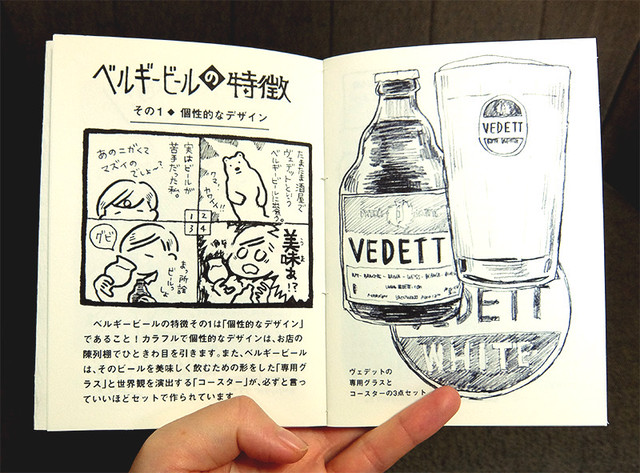 ベルギービールの特徴
その1◆個性的なデザイン
あのニがくて
マズイの
でしょ〜?
実はビールが
苦手だった私。
1 2
3 4
たまたま酒屋で
ヴェデットという
ベルギービールに出会う。
クマ…
カワイイ!!
グビ
まっ所詮
ビールっしょ
美味ぁ!?
うま
ベルギービールの特徴その1は「個性的なデザイン」
であること!カラフルで個性的なデザインは、お店の
陳列棚でひときわ目を引きます。また、ベルギービール
は、そのビールを美味しく飲むための形をした「専用グ
ラス」と世界観を演出する「コースター」が、必ずと言っ
ていいほどセットで作られています。
VEDETT
VEDETT
VEDETT
WHITE
ヴェデットの
専用グラスと
コースターの3点セット